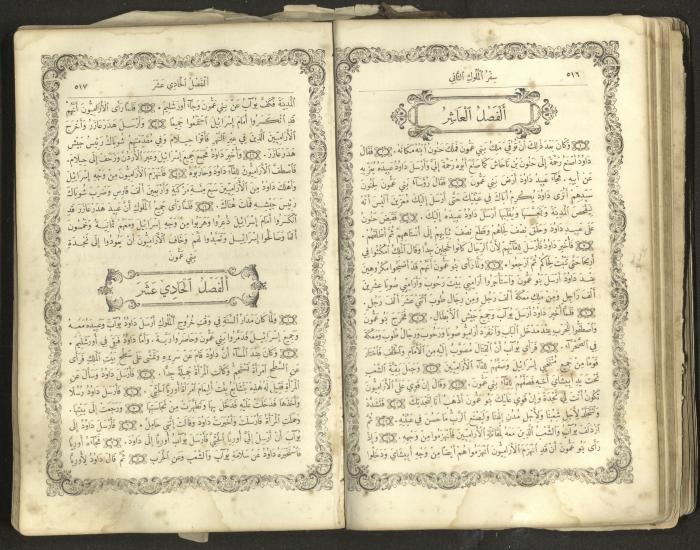 ٥١٦
سفر الملوك الثاني
الفصل العاشر
وكان بعد ذلك أن توفي ملك بني عمون فملك حنون ابنه مكانه. فقال
داود أصنع رحمة إلى حنون بن ناحاش كما صنع أبوه رحمة إلي وأرسل داود عبيده يعزيه
عن أبيه. فجاء عبيد داود أرض بني عمون. فقال رؤساء بني عمون لحنون
سيدهم أترى داود يكرم أباك في عينيك حتى أرسل إليك معزين أليس أنه
لفحص المدينة وتجسسها وبقلبها أرسل داود عبيده إليك. فقبض حنون
على عبيد داود وحلق نصف لحاهم وقطع نصف ثيابهم إلى أستاههم ثم أطلقهم.
فأخبر داود فأرسل للقائهم لأن الرجال كانوا خجلين جدا وقال الملك امكثوا في
أريحا حتى تنبت لحاكم ثم ارجعوا. ولما رأى بنو عمون أنهم قد أصبحوا مكروهين
عند داود أرسل بنو عمون واستأجروا أراميي بيت رحوب وأراميي صوبا عشرين
ألف راجل ومن ملك معكة ألف رجل ومن رجال طوب اثني عشر ألف رجل.
فلما أخبر داود أرسل يوآب وجميع جيش الأبطال. فخرج بنو عمون
واصطفوا للحرب عند مدخل الباب وانفرد أراميو صوبا ورحوب ورجال طوب ومعكة
في الصحراء. فرأى يوآب أن القتال مصوب إليه من الأمام والخلف فاختار
قوما من جميع منتخبي إسرائيل وصفهم للقاء الأراميين. وجعل بقية الشعب
تحت يد أبيشاي أخيه فصفهم للقاء بني عمون. وقال إن قوي علي الأراميون
تكون أنت لي نجدة وإن قوي عليك بنو عمون أذهب أنا لنجدتك. فتشدد
ولنتجلد لأجل شعبنا ولأجل مدن إلهنا وليصنع الرب ما حسن في عينيه. ثم
ازدلف يوآب والشعب الذين معه لمقاتلة الأراميين فانهزموا من وجهه. وإذ
رأى بنو عمون أن قد انهزم الأراميون انهزموا هم أيضا من وجه أبيشاي ودخلوا
الفصل الحادي عشر
٥١٧
المدينة فكف يوآب عن بني عمون وجاء أورشليم. فلما رأى الأراميون أنهم
قد انكسروا أمام إسرائيل اجتمعوا جميعا. وأرسل هدر عازر وأخرج
الأراميين الذين في عبر النهر فأتوا حيلام وفي مقدمتهم شوباك رئيس جيش
هدر عازر. وأخبر داود فجمع جميع إسرائيل وعبر الأردن وزحف إلى حيلام.
فاصطف الأراميون للقاء داود وحاربوه. فانهزم الأراميون من وجه إسرائيل
وأهلك داود من الأراميين سبع مئة مركبة وأربعين ألف فارس وضرب شوباك
رئيس جيشه فملك هناك. فلما رأى جميع الملوك أن عبيد هدر عازر قد
انكسروا أمام إسرائيل ذعروا وهربوا من وجه إسرائيل
ألفا وصالحوا إسرائيل وتعبدوا لهم وخاف الأراميون أن يعودوا إلى نجدة
بني عمون
الفصل الحادي عشر
ولما كان مدار السنة في وقت خروج الملوك أرسل داود يوآب وعبيده معه
وجميع إسرائيل فدمروا بني عمون وحاصروا ربة. وأما داود فبقي في أورشليم.
وكان عند المساء أن داود قام عن سريره وتمشى على سطح بيت الملك فرأى
عن السطح امرأة تستحم وكانت المرأة جميلة جدا. فأرسل داود وسأل عن
المرأة فقيل له هذه بتشابع بنت أليعام امرأة أوريا الحثي. فأرسل داود رسلا
وأخذها فدخلت عليه فدخل بها وتطهرت من نجاستها. ورجعت إلى بيتها.
وحملت المرأة فأرسلت وأخبرت داود وقالت إني حامل. فأرسل داود إلى
يوآب أن أرسل إلي أوريا الحثي فأرسل يوآب أوريا إلى داود. فجاءه أوريا
فاستخبره داود عن سلامة يوآب والشعب وعن الحرب. ثم قال داود لأوريا